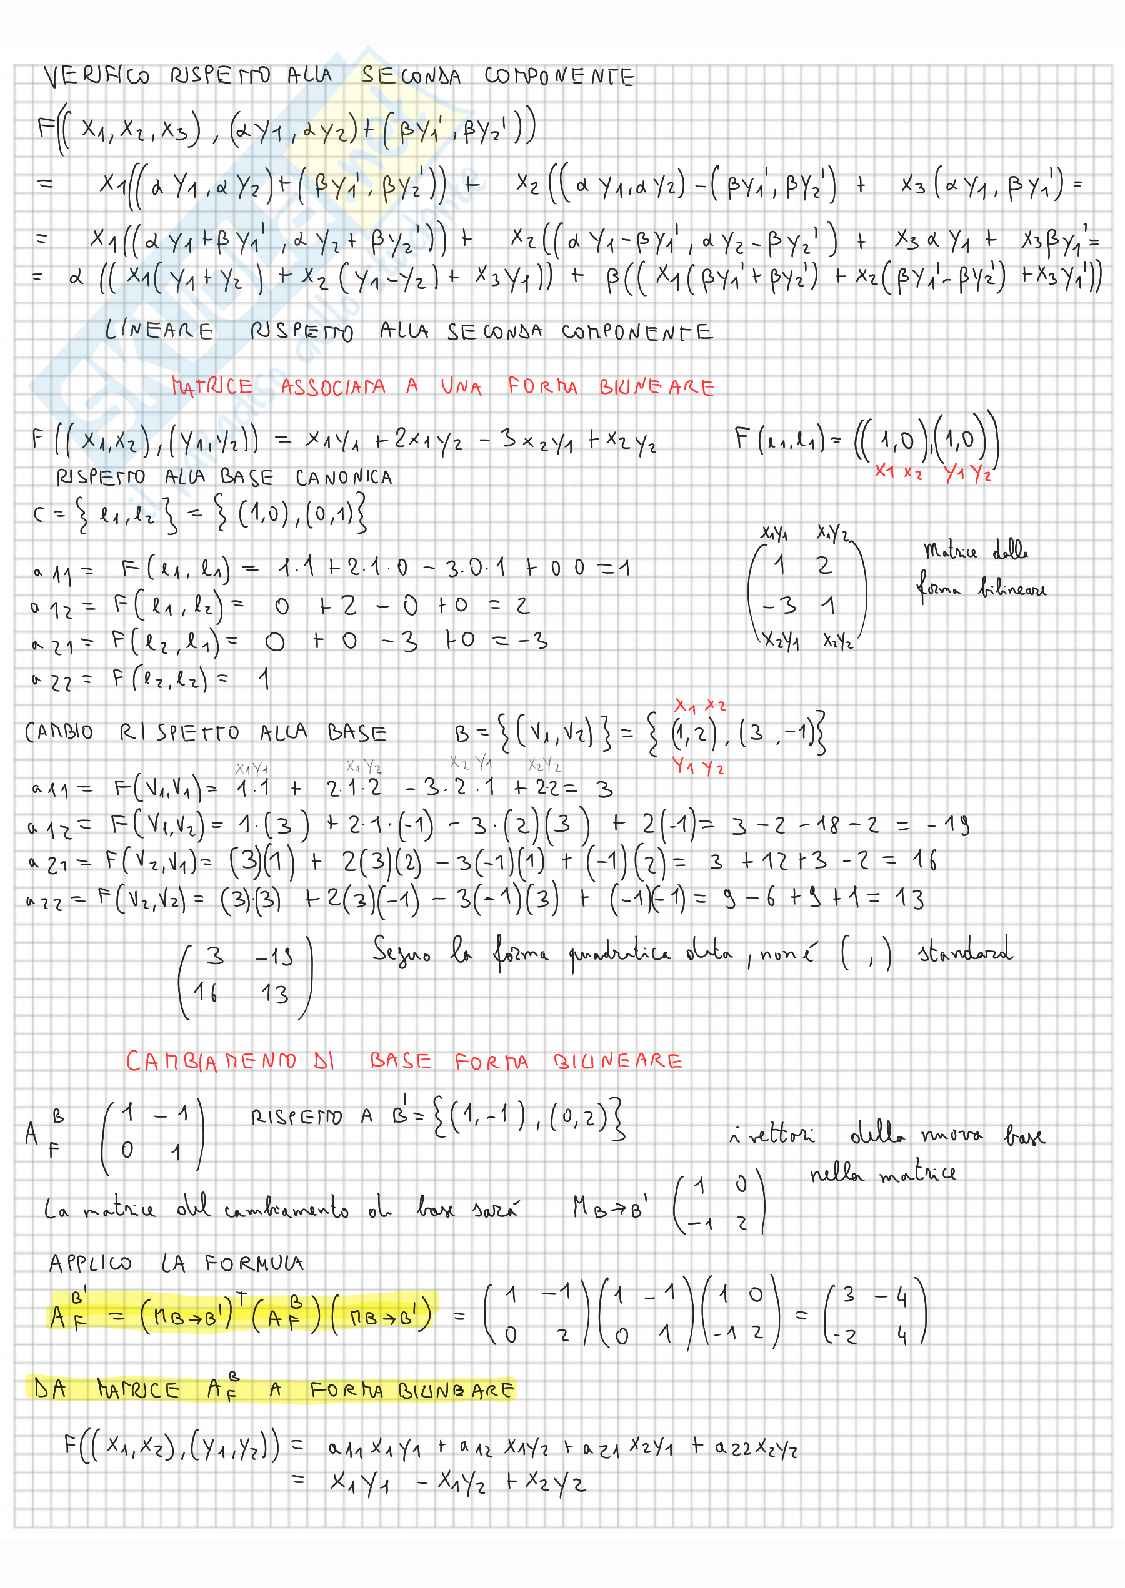 VERIFICO RISPETTO ALLA SECONDA COMPONENTE
F((x1, x2, x3), (αy1, αy2)+(βy1', βy2'))
= x1((αy1, αy2)+(βy1', βy2')) + x2((αy1, αy2)-(βy1', βy2') + x3(αy1, βy1') =
= x1((αy1+βy1', αy2+βy2')) + x2((αy1-βy1', αy2-βy2') + x3αy1 + x3βy1'=
= α((x1(y1+y2) + x2(y1-y2)+x3y1)) + β((x1(βy1'+βy2') + x2(βy1'-βy2') +x3y1'))
LINEARE RISPETTO ALLA SECONDA COMPONENTE
MATRICE ASSOCIATA A UNA FORMA BILINEARE
F((x1,x2),(y1,y2)) = x1y1+2x1y2-3x2y1+x2y2 F(e1,e1)=((1,0),(1,0))
x1 x2 y1 y2
RISPETTO ALLA BASE CANONICA
C={e1,e2}={(1,0),(0,1)}
x1y1 x1y2
a11= F(e1,e1) = 1·1+2·1·0-3·0·1+0 0=1 (1 2 Matrice della
a12=F(e1,e2)= 0 +2 -0 +0 = 2 -3 1) forma bilineare
a21=F(e2,e1)= 0 + 0 - 3 +0 =-3 x2y1 x2y2
a22=F(e2,e2)= 1
x1 x2
CAMBIO RISPETTO ALLA BASE B={(V1,V2)}={(1,2),(3,-1)}
y1 y2
x1y1 x1y2 x2y1 x2y2
a11= F(V1,V1)= 1·1 + 2·1·2 -3·2·1 +2·2= 3
a12= F(V1,V2)= 1·(3) +2·1·(-1) -3·(2)(3) + 2(-1)= 3-2-18-2 = -19
a21= F(V2,V1)= (3)(1) + 2(3)(2) -3(-1)(1) + (-1)(2)= 3+12+3-2=16
a22= F(V2,V2)= (3)·(3) +2(3)(-1) -3(-1)(3) + (-1)(-1)= 9-6+9+1=13
(3 -19 Seguo la forma quadratica data, non é ( , ) standard
16 13)
CAMBIAMENTO DI BASE FORMA BILINEARE
A B F (1 -1 RISPETTO A B'={(1,-1),(0,2)}
0 1) i vettori della nuova base
nella matrice
La matrice del cambiamento di base sará M B→B' (1 0
-1 2)
APPLICO LA FORMULA
A B' F = (M B→B')T (A B F)(M B→B') = (1 -1 (1 -1 (1 0 = (3 -4
0 2) 0 1) -1 2) -2 4)
DA MATRICE A B F A FORMA BILINEARE
F((x1,x2),(y1,y2)) = a11x1y1+a12x1y2+a21x2y1+a22x2y2
= x1y1-x1y2+x2y2